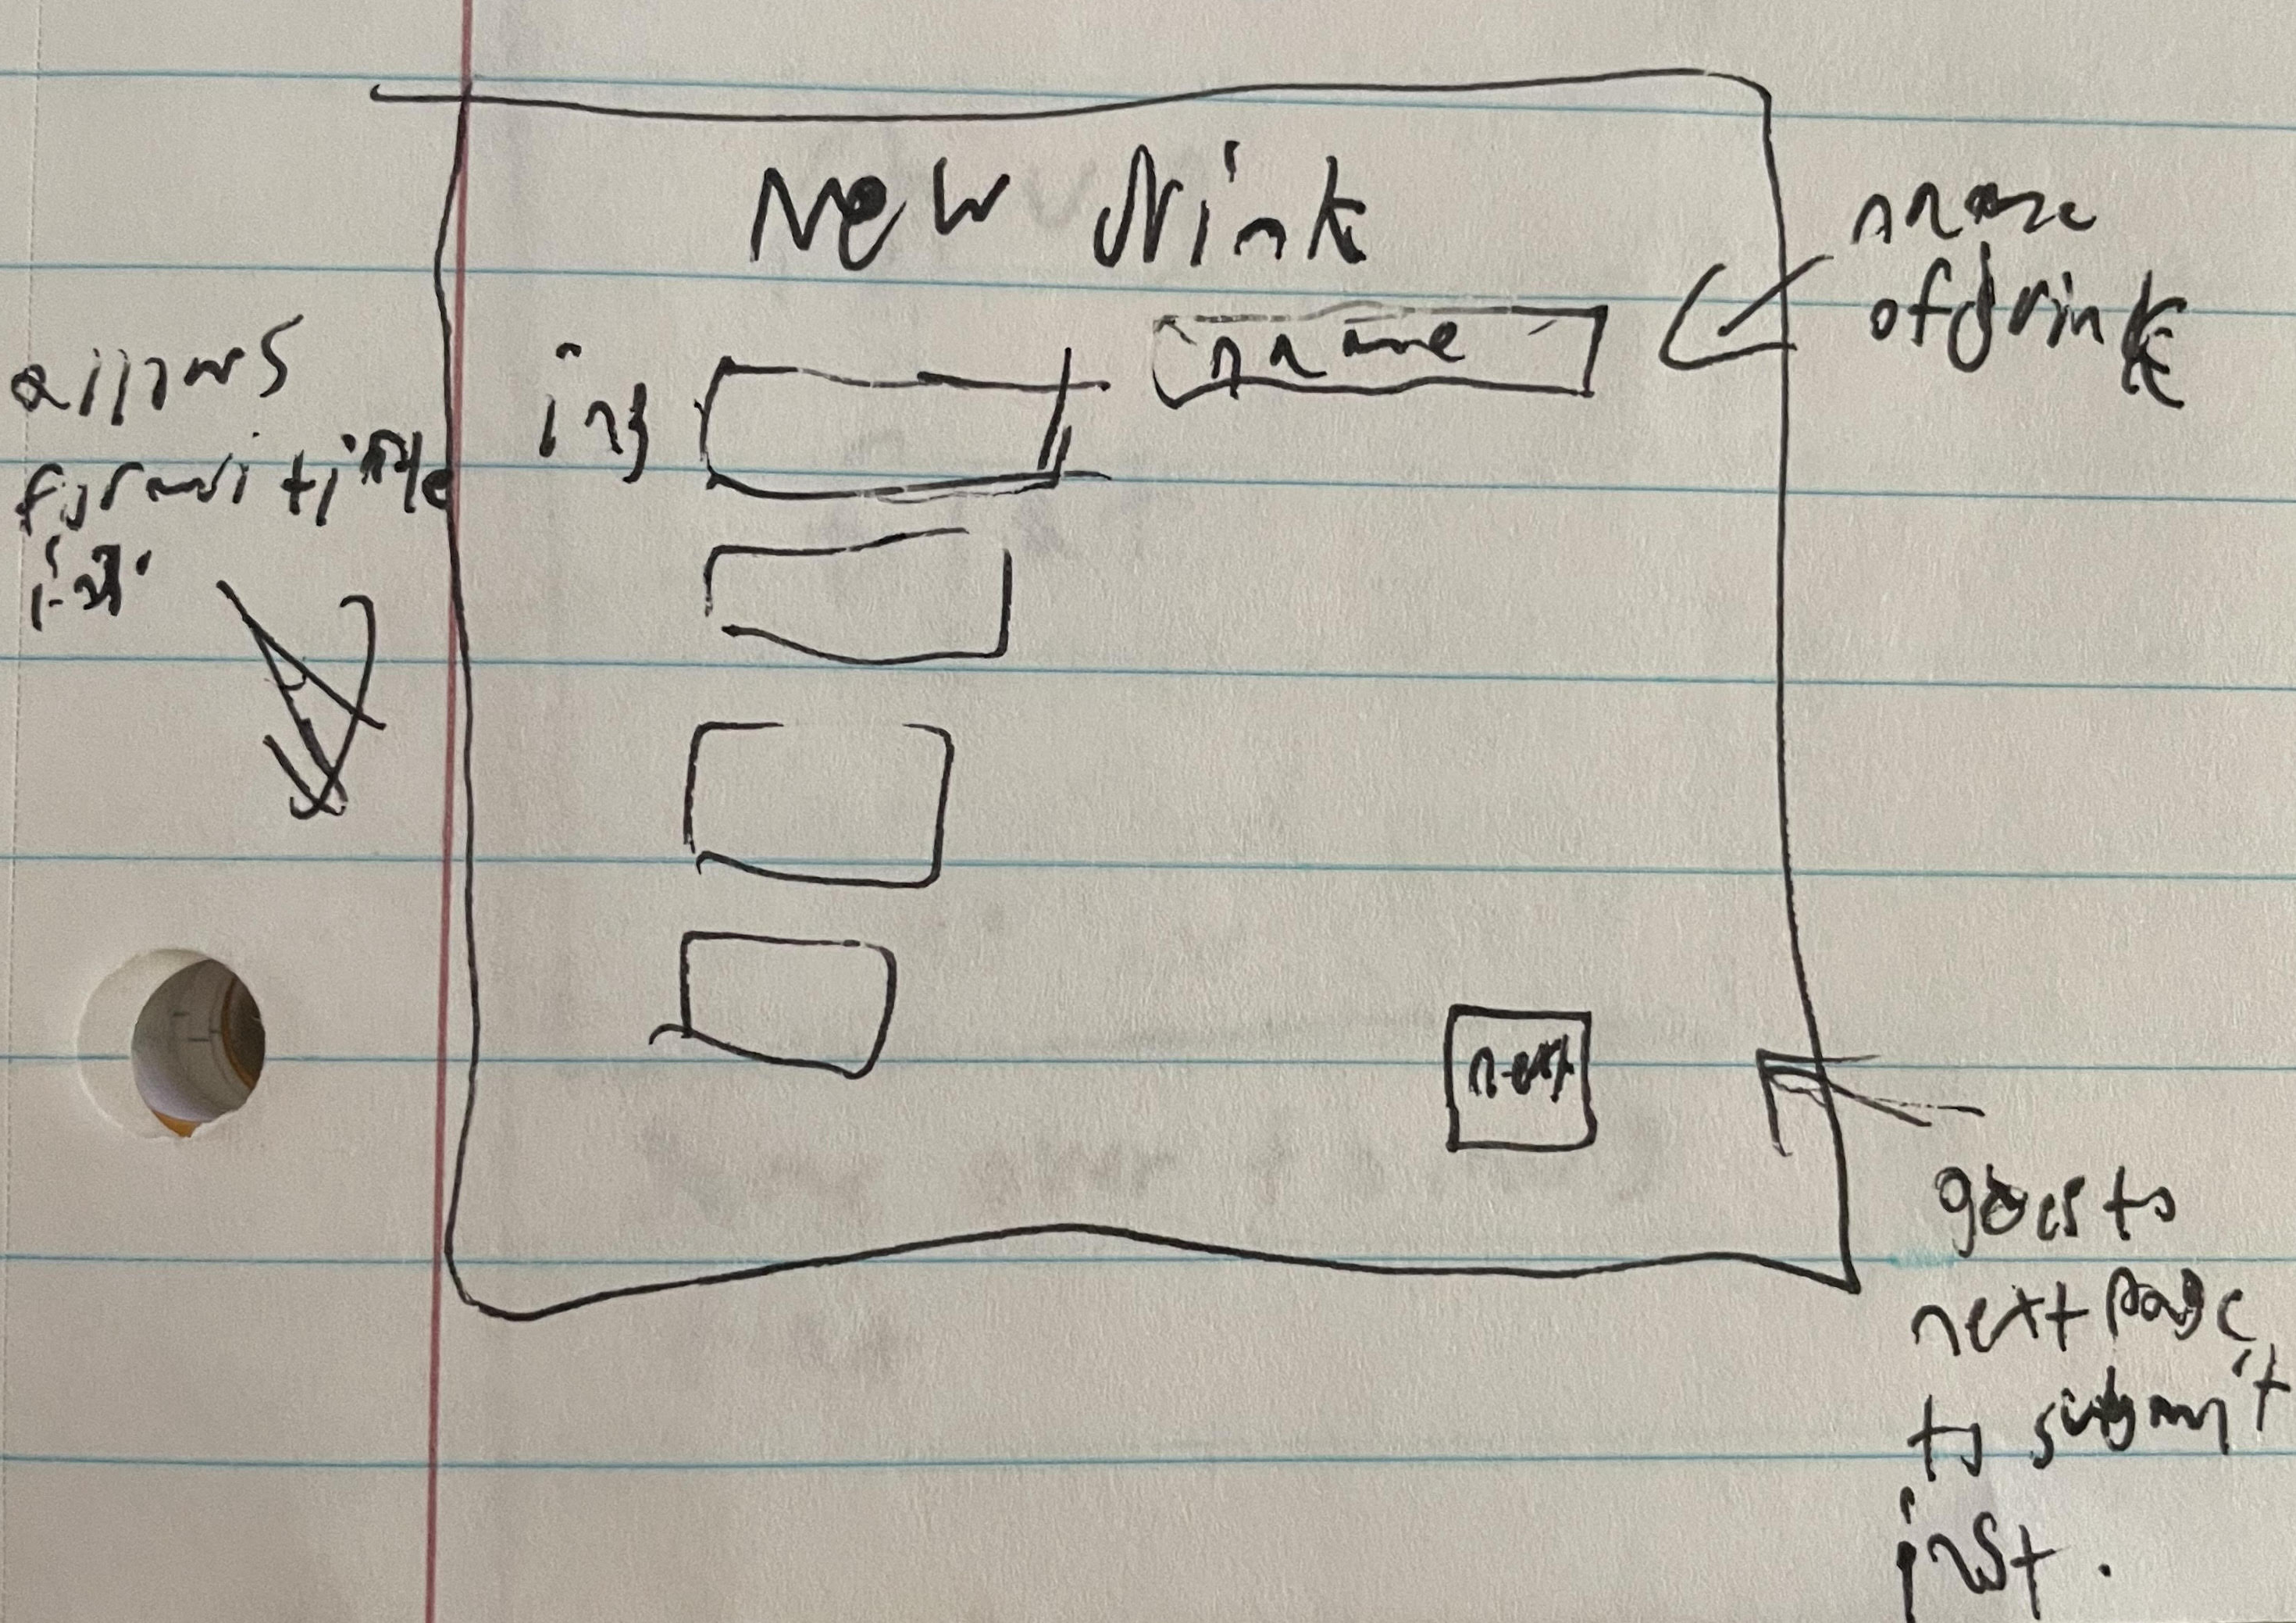 New drink
name
of drink
name
ing
allows
for multiple
ing.
next
goes to
next page
to submit
inst.